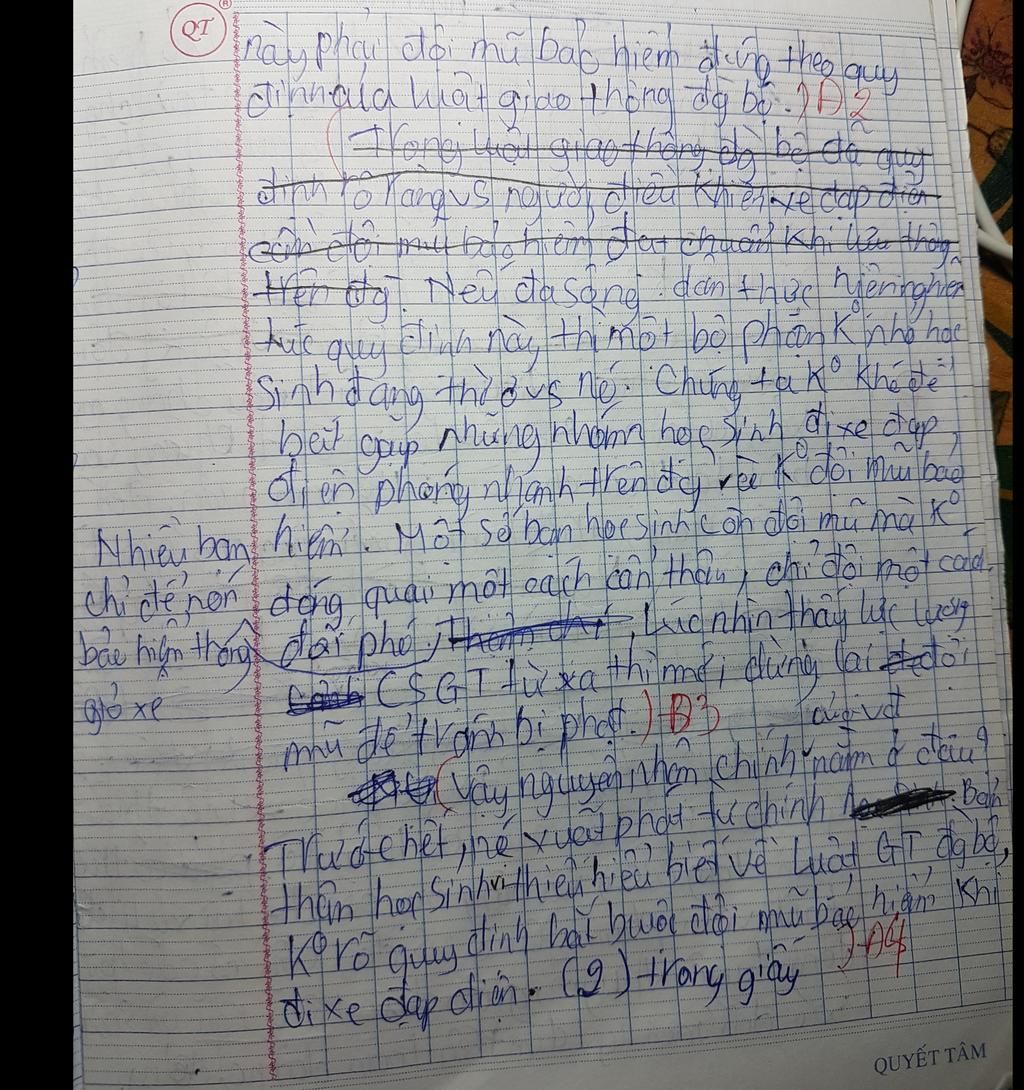 QT
này phải đội mũ bảo hiểm đúng theo quy
định của luật giao thông đg bộ.) A2
Trong luật giao thông đg bộ đã quy
định rõ ràng vs người điều khiển xe đạp điện
cần đội mũ bảo hiểm đạt chuẩn khi lưu thông
trên đg. Nếu đa số ng dân thực hiện nghiêm
túc quy định này thì một bộ phận K° nhỏ học
sinh đang thờ ơ vs nó. Chúng ta K° khó để
bắt gặp những nhóm học sinh đi xe đạp
điện phóng nhanh trên đg K° đội mũ bảo
hiểm. Một số bạn học sinh còn đội mũ mà K°
Nhiều bạn
chỉ để nón
bảo hiểm
giỏ xe
đóng quai một cách cẩn thận, chỉ đội một cách
đối phó, lúc nhìn thấy lực lượng
CSGT từ xa thì mới dừng lại đội
mũ để tránh bị phạt.) B3
(Vậy nguyên nhân chính nằm ở đâu?
Trước hết, nó xuất phát từ chính Bản
thân học sinh thiếu hiểu biết về Luật GT đg bộ,
K° rõ quy định bắt buộc đội mũ bảo hiểm khi
đi xe đạp điện. (2) trong giấy ) A4
QUYẾT TÂM